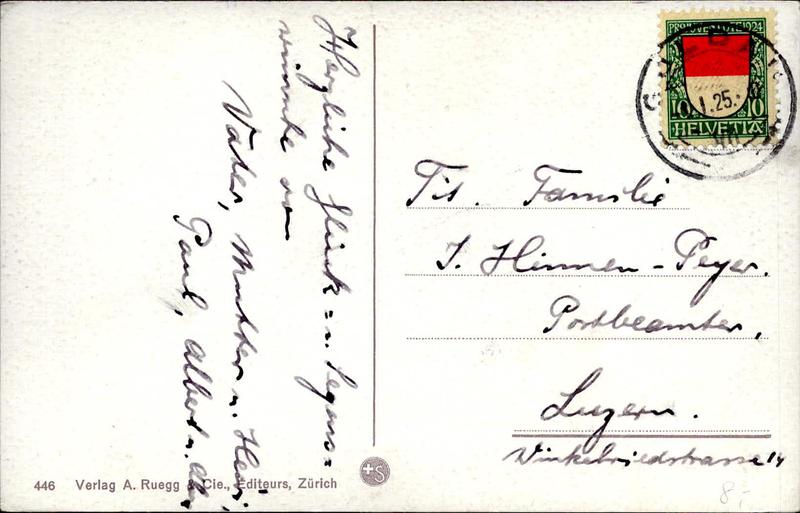 Herzliche Glück- u. Segens-
wünsche von
Vater, Mutter u. Heiri,
Paul, Albert u.
PRO JUVENTUTE 1924
10 10
HELVETIA
1.25.
Tit. Familie
J. Hinnen-Peyer.
Postbeamter,
Luzern.
Winkelriedstrasse 14
446 Verlag A. Ruegg & Cie., Editeurs, Zürich
S
8.-